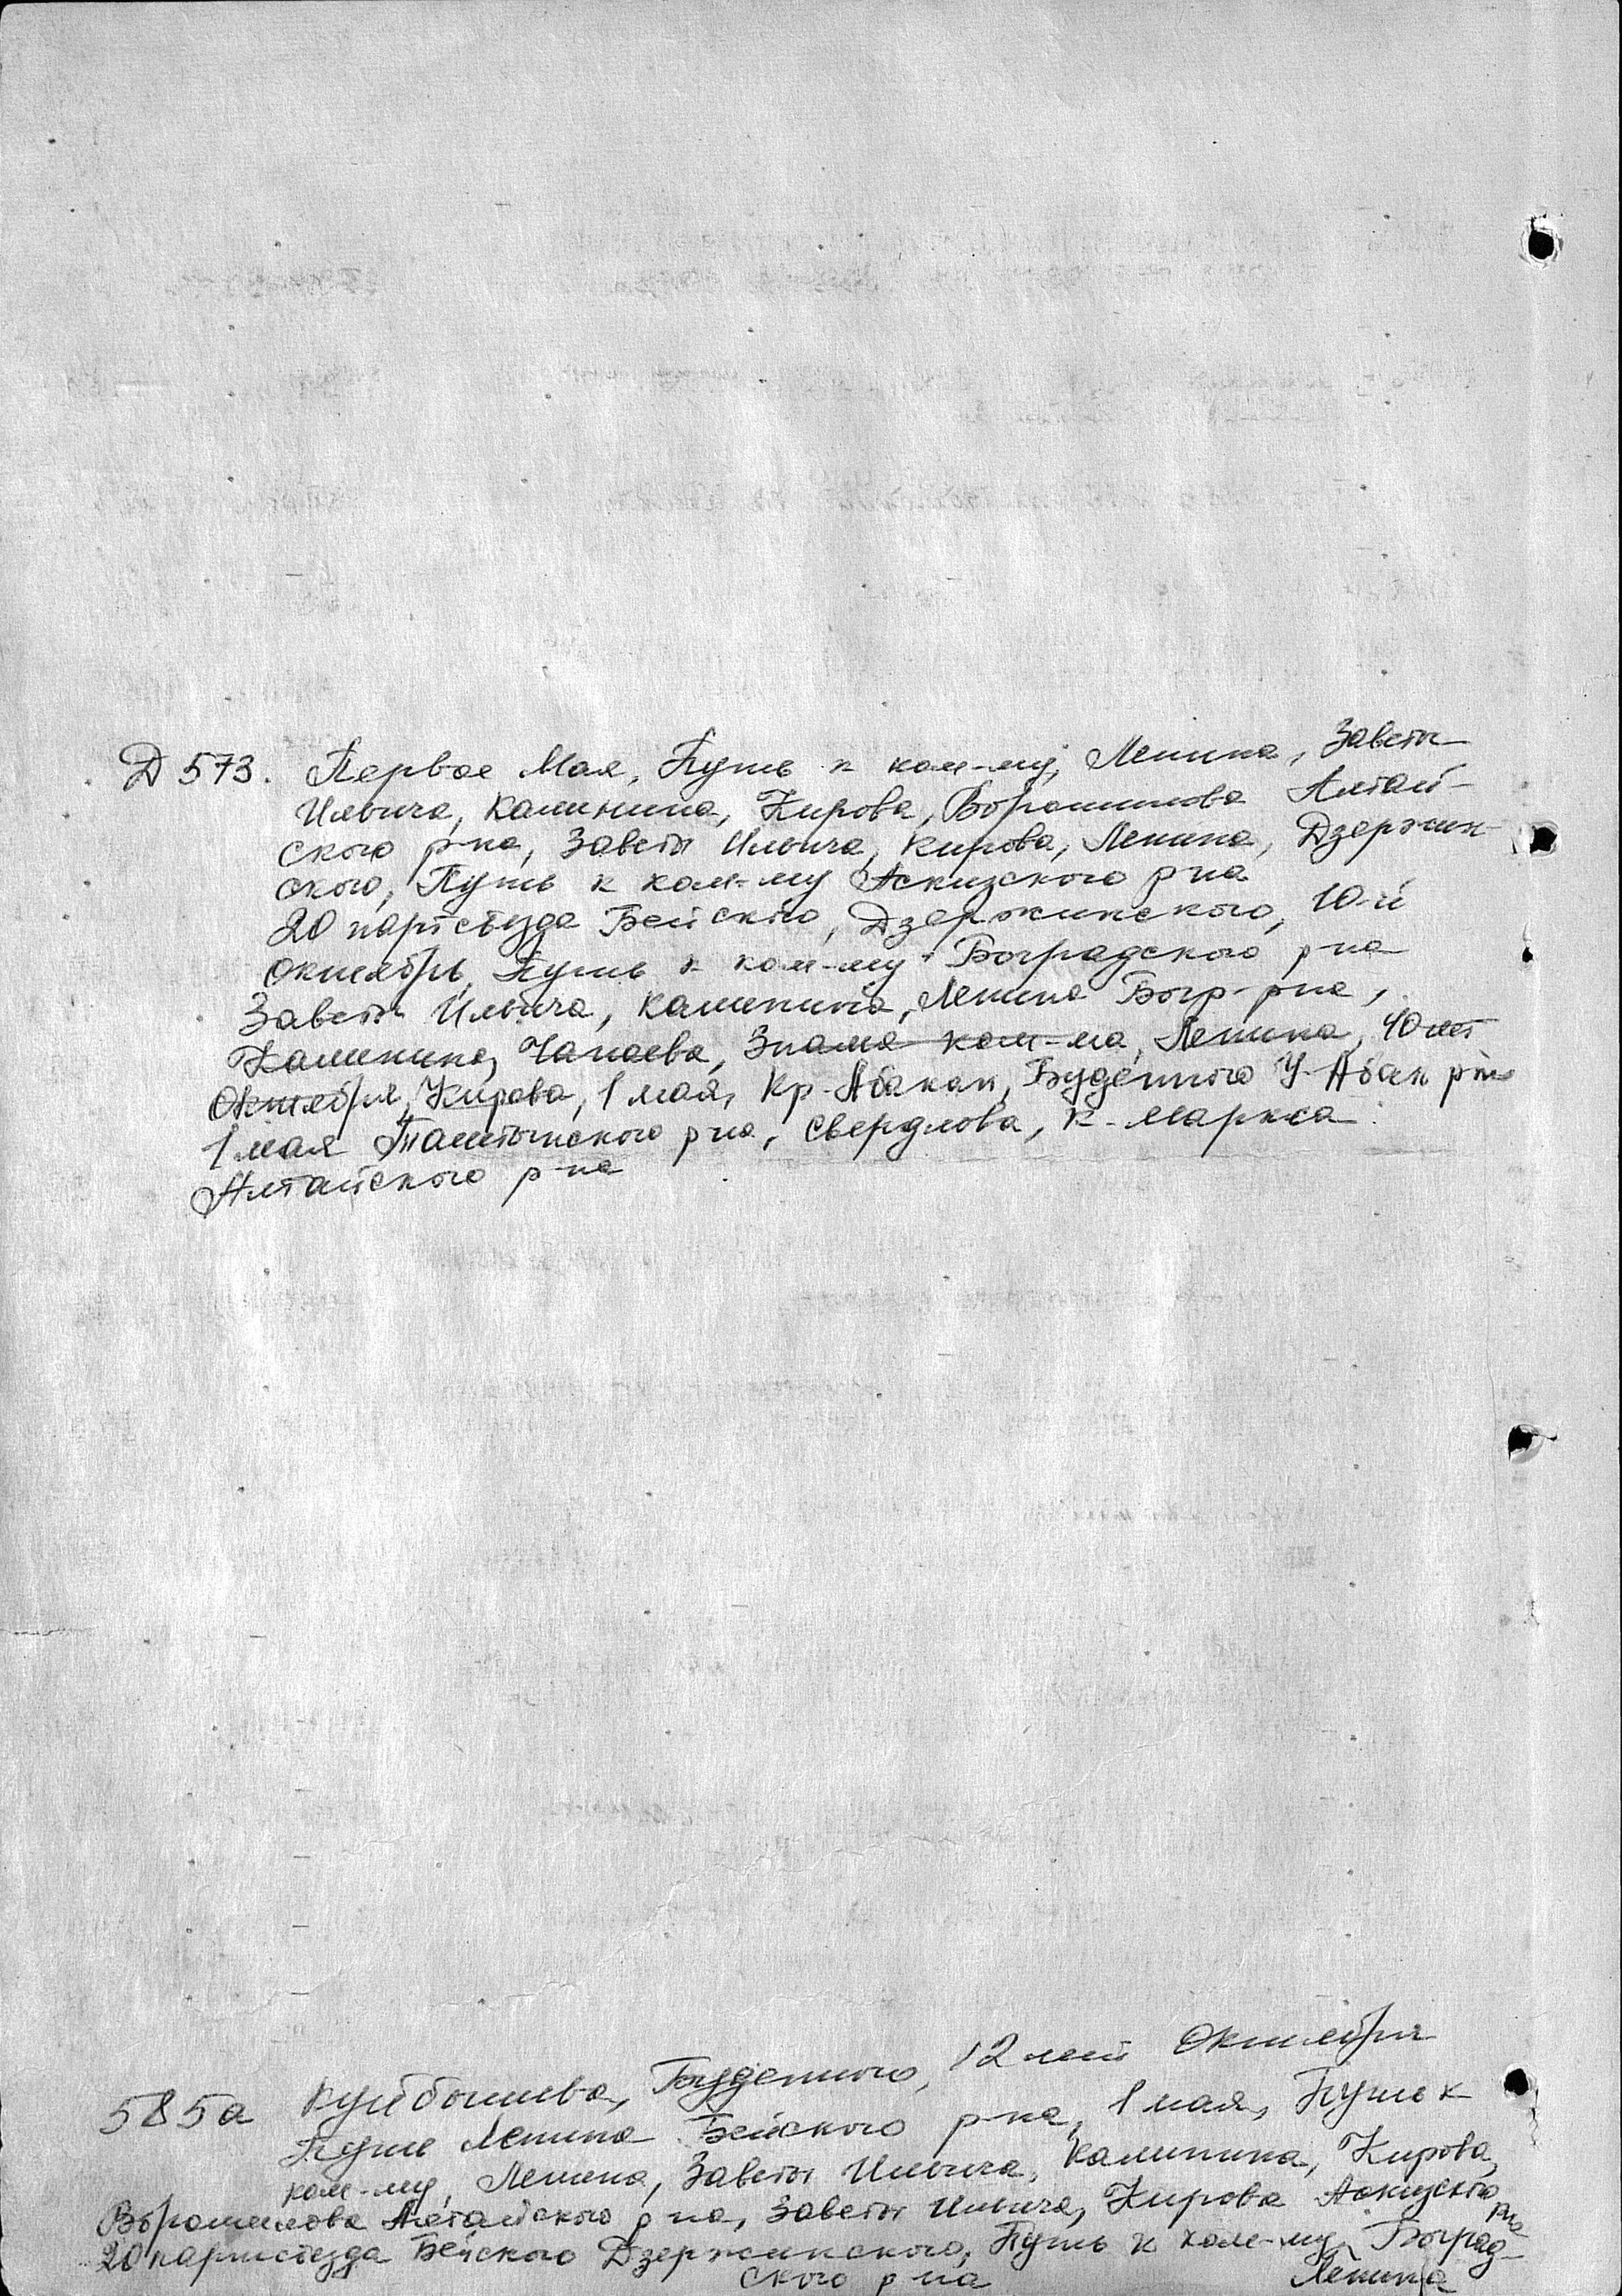 Д 573. Первое Мая, Путь к ком-му, Ленина, Заветы
Ильича, Калинина, Кирова, Ворошилова Алтай-
ского р-на, Заветы Ильича, Кирова, Ленина, Дзержин-
ского, Путь к ком-му Аскизского р-на
20 партсъезда Бейского, Дзержинского, 10-й
Октябрь, Путь к ком-му Боградского р-на
Заветы Ильича, Калинина, Ленина Богр-р-на,
Калинина, Чапаева, Знамя ком-ма, Ленина, 40 лет
Октября, Кирова, 1 мая, Кр-Абакан, Буденного У-Абак р-на
1 мая Таштыпского р-на, Свердлова, К-Маркса
Алтайского р-на
585а Куйбышева, Буденного, 12 лет Октября
Путь Ленина Бейского р-на, 1 мая, Путь к
ком-му, Ленина, Заветы Ильича, Калинина, Кирова,
Ворошилова Алтайского р-на, Заветы Ильича, Кирова Аскизского р-на
20 партсъезда Бейского Дзержинского, Путь к ком-му, Боград-
ского р-на Ленина